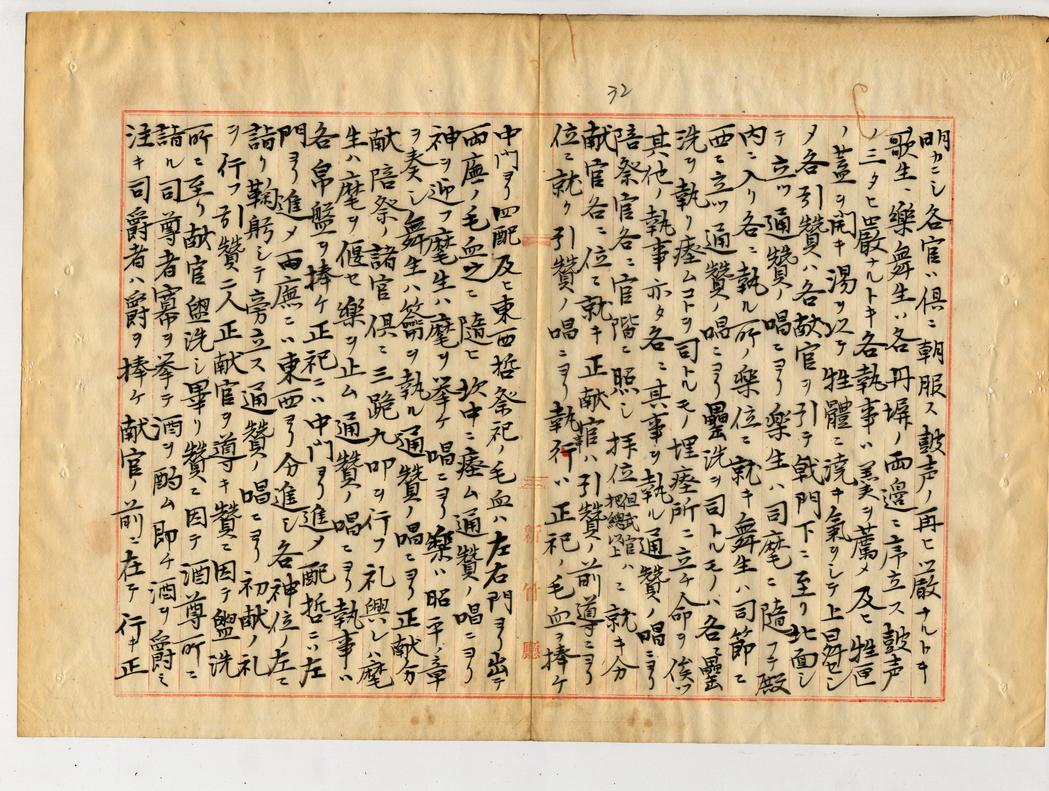 32
明カニシ各官ハ俱ニ朝服ス鼓声ノ再ヒ嚴ナルトキ
歌生、樂舞生ハ各丹墀ノ両邉ニ序立ス鼓声
ノ三タヒ嚴ナルトキ各執事ハ羹ヲ薦メ及ヒ牲匣
ノ蓋ヲ開キ湯ヲ以テ牲體ニ澆キ氣ヲシテ上昇セシ
メ各引贊ハ各献官ヲ引テ戟門下ニ至リ北面シ
テ立ツ通贊ノ唱ニヨリ樂生ハ司麾ニ隨フテ殿
内ニ入リ各ニ執ル所ノ樂位ニ就キ舞生ハ司節ニ
西ニ立ツ通贊ノ唱ニヨリ罍洗ヲ司トルモノハ各罍
洗ヲ執リ瘞ムコトヲ司トルモノ埋瘞所ニ立チ命ヲ俟ツ
其ハ他ノ執事亦タ各ニ其事ヲ執ル通贊ノ唱ニヨリ
陪祭官各ニ官階ニ照シ拝位但武官ハ把總以上ニ就キ分
献官各ニ位ニ就キ正献官ハ引贊ノ前導ニヨリ
位ニ就ク引贊ノ唱ニヨリ執事行ハ正祀ノ毛血ヲ捧ケ
新竹廳
中門ヨリ四配及ヒ東西哲祭祀ノ毛血ハ左右門ヨリ出テ
両廡ノ毛血之ニ隨ヒ坎中ニ瘞ム通贊ノ唱ニヨリ
神ヲ迎フ麾生ハ麾ヲ挙ケ唱ニヨリ樂ハ昭平ノ章
ヲ奏シ舞生ハ籥ヲ執ル通贊ノ唱ニヨリ正献分
献陪祭ノ諸官俱ニ三跪九叩ヲ行フ礼興レハ麾
生ハ麾ヲ偃セ樂ヲ止ム通贊ノ唱ニヨリ執事ハ
各帛盤ヲ捧ケ正祀ニハ中門ヨリ進メ配哲ニハ左
門ヨリ進メ両廡ニハ東西ヨリ分進シ各神位ノ左ニ
詣リ鞠躬シテ旁立ス通贊ノ唱ニヨリ初献ノ礼
ヲ行フ引贊二人正献官ヲ導キ贊ニ因テ盥洗
所ニ至リ献官盥洗シ畢リ贊ニ因テ酒尊所ニ
詣ル司尊者冪ヲ挙テ酒ヲ酌ム即チ酒ヲ爵ニ
注キ司爵者ハ爵ヲ捧ケ献官ノ前ニ在テ行キ正